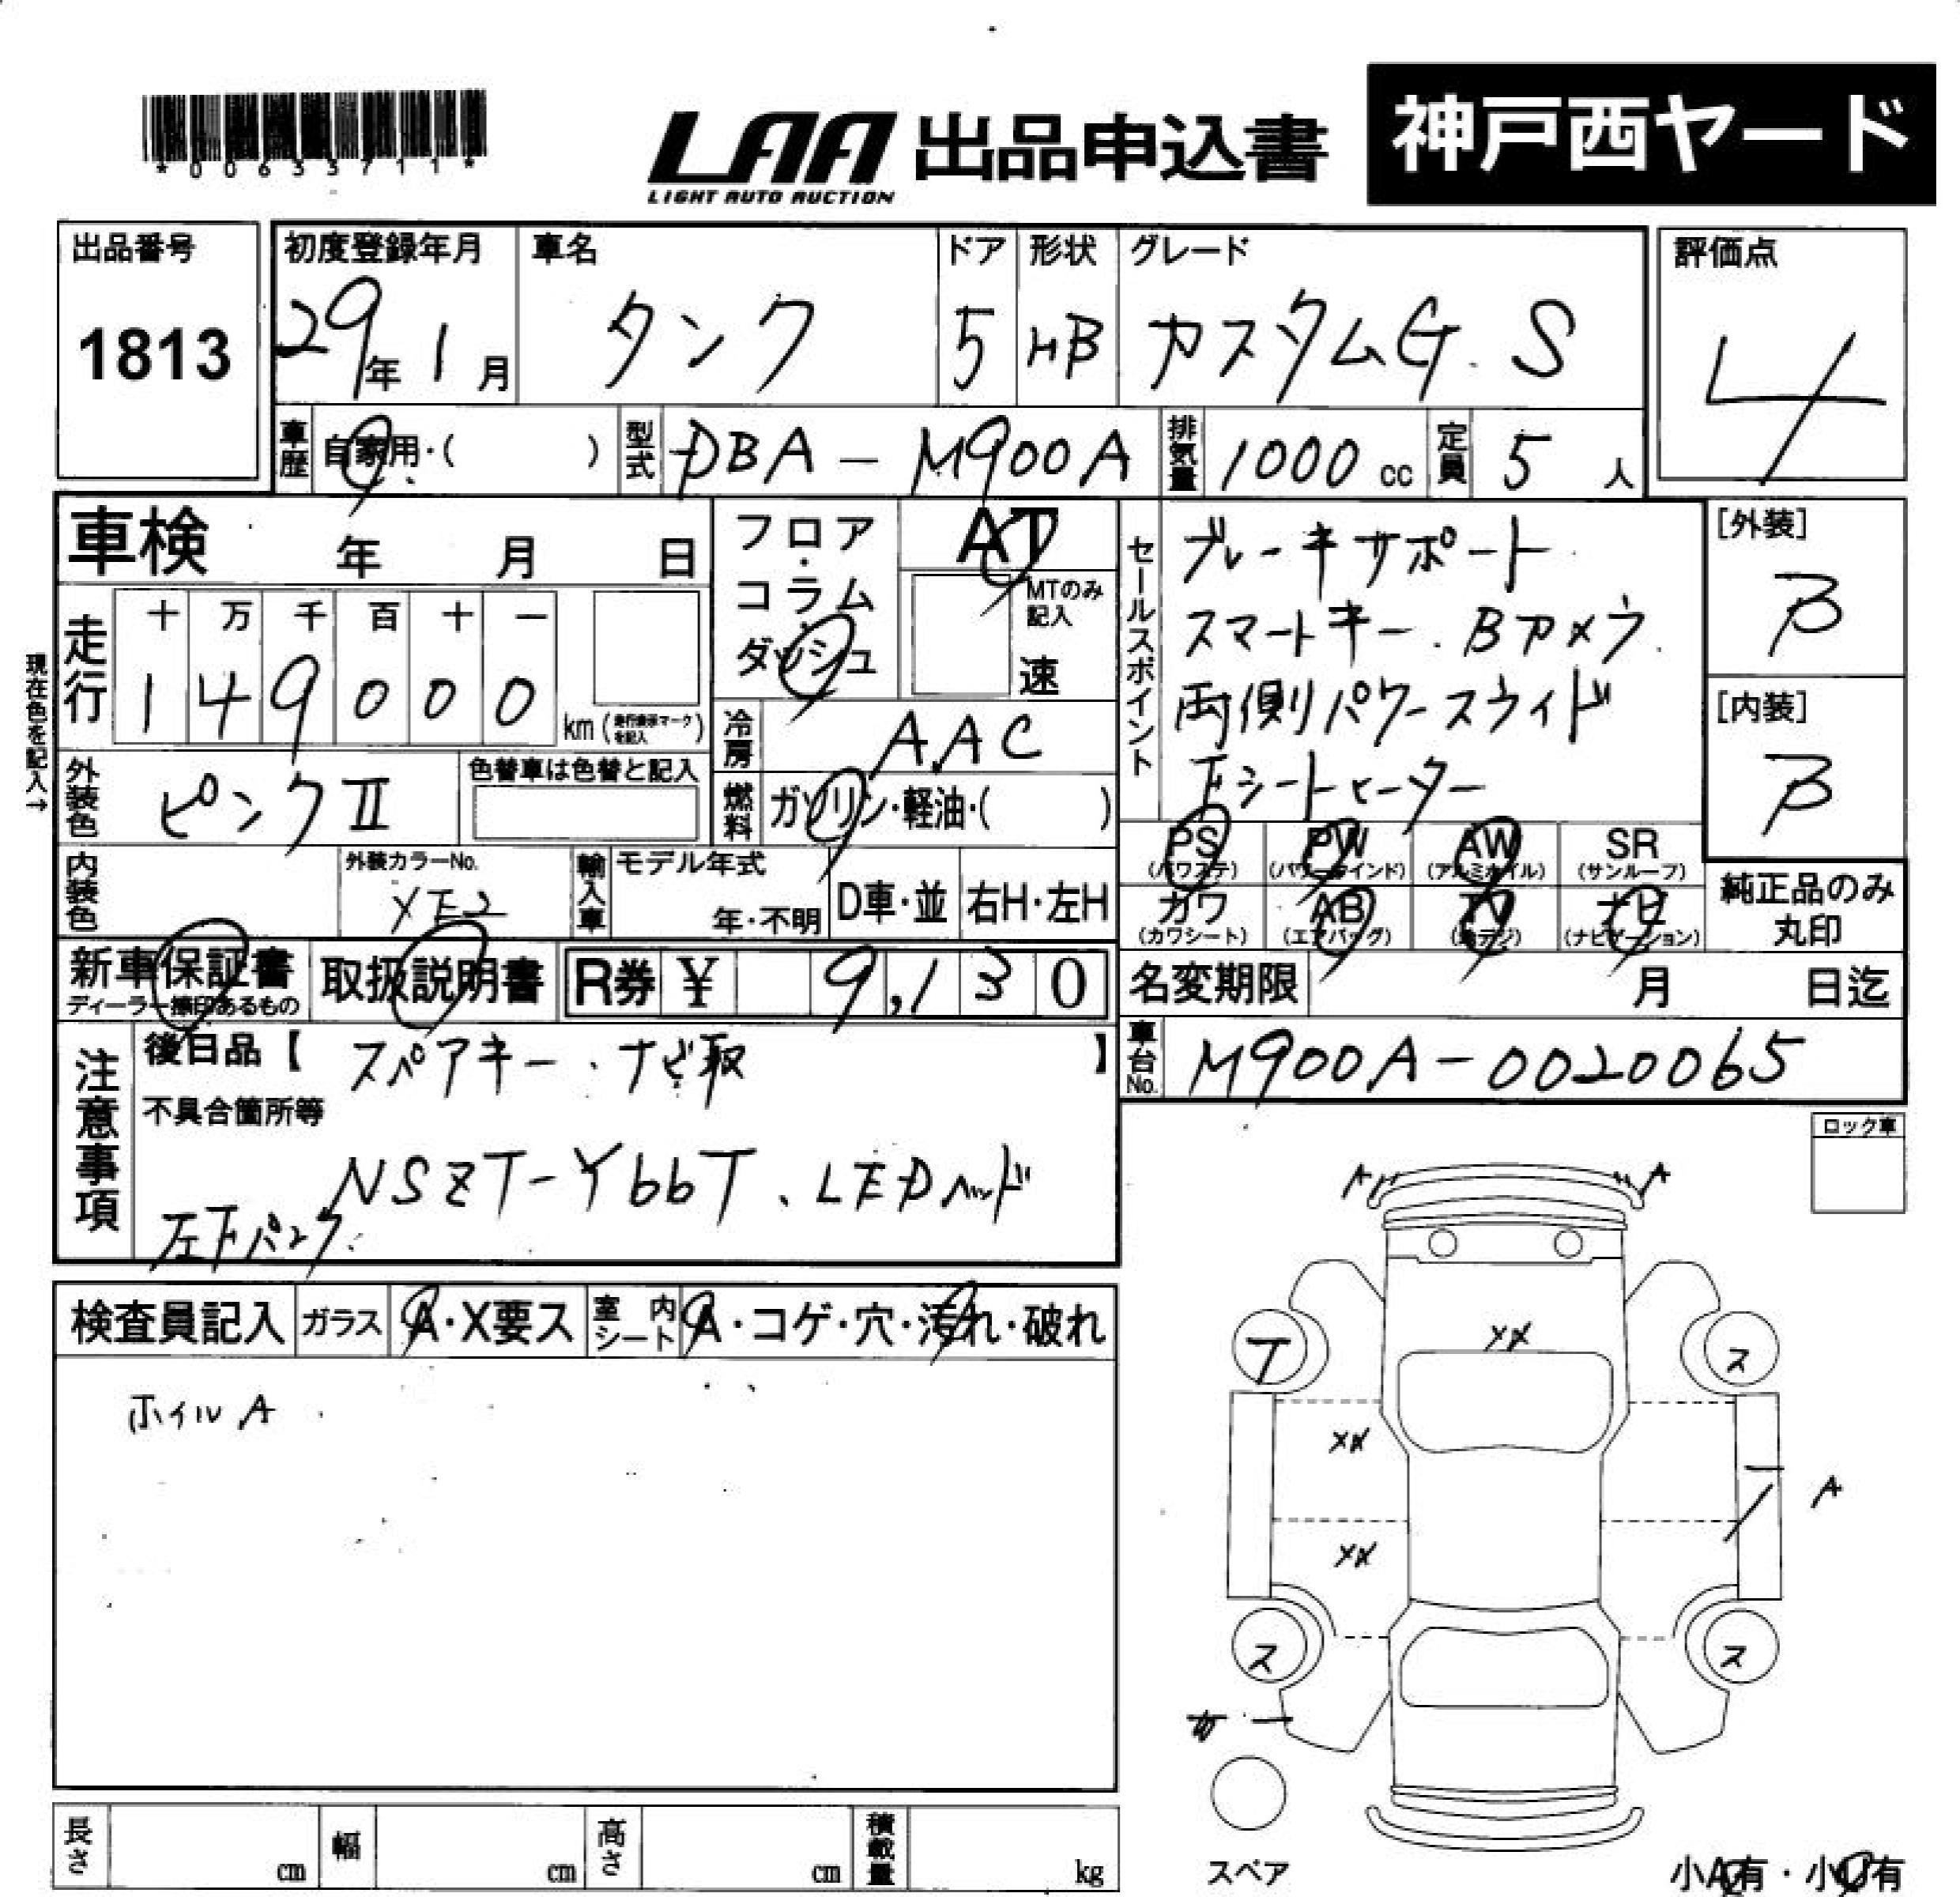 *00633711*
LAA 出品申込書 神戸西ヤード
LIGHT AUTO AUCTION
出品番号 初度登録年月 車名 ドア 形状 グレード 評価点
1813 29年 1月 タンク 5 HB カスタムG.S 4
車歴 自家用・( ) 型式 DBA-M900A 排気量 1000cc 定員 5人
車検 年 月 日
フロア・コラム・ダッシュ AT
MTのみ記入 速
セールスポイント
ブレーキサポート
スマートキー.Bカメラ.
両側パワースライド
Fシートヒーター
[外装]
B
[内装]
B
現在色を記入→
走行 十 万 千 百 十 一
1 4 9 0 0 0 km (走行表示マークを記入)
冷房 AAC
外装色 ピンクⅡ 色替車は色替と記入
燃料 ガソリン・軽油・( )
内装色 外装カラーNo. 輸入車 モデル年式 年・不明 D車・並 右H・左H
PS (パワステ) PW (パワーウインド) AW (アルミホイル) SR (サンルーフ)
カワ (カワシート) AB (エアバッグ) TV (地デジ) ナビ (ナビゲーション)
純正品のみ丸印
新車保証書 取扱説明書 R券 ¥ 9,130
ディーラー捺印あるもの
名変期限 月 日迄
車台No. M900A-0020065
注意事項
後日品【 スペアキー.ナビ取 】
不具合箇所等
NSZT-Y66T、LEDヘッド
左下パンク.
ロック車
A A
検査員記入 ガラス A・X要ス 室内シート A・コゲ・穴・汚れ・破れ
ホイルA
XX
T ス
XX
A
XX
ス ス
スペア
長さ cm 幅 cm 高さ cm 積載量 kg
小A有・小U有